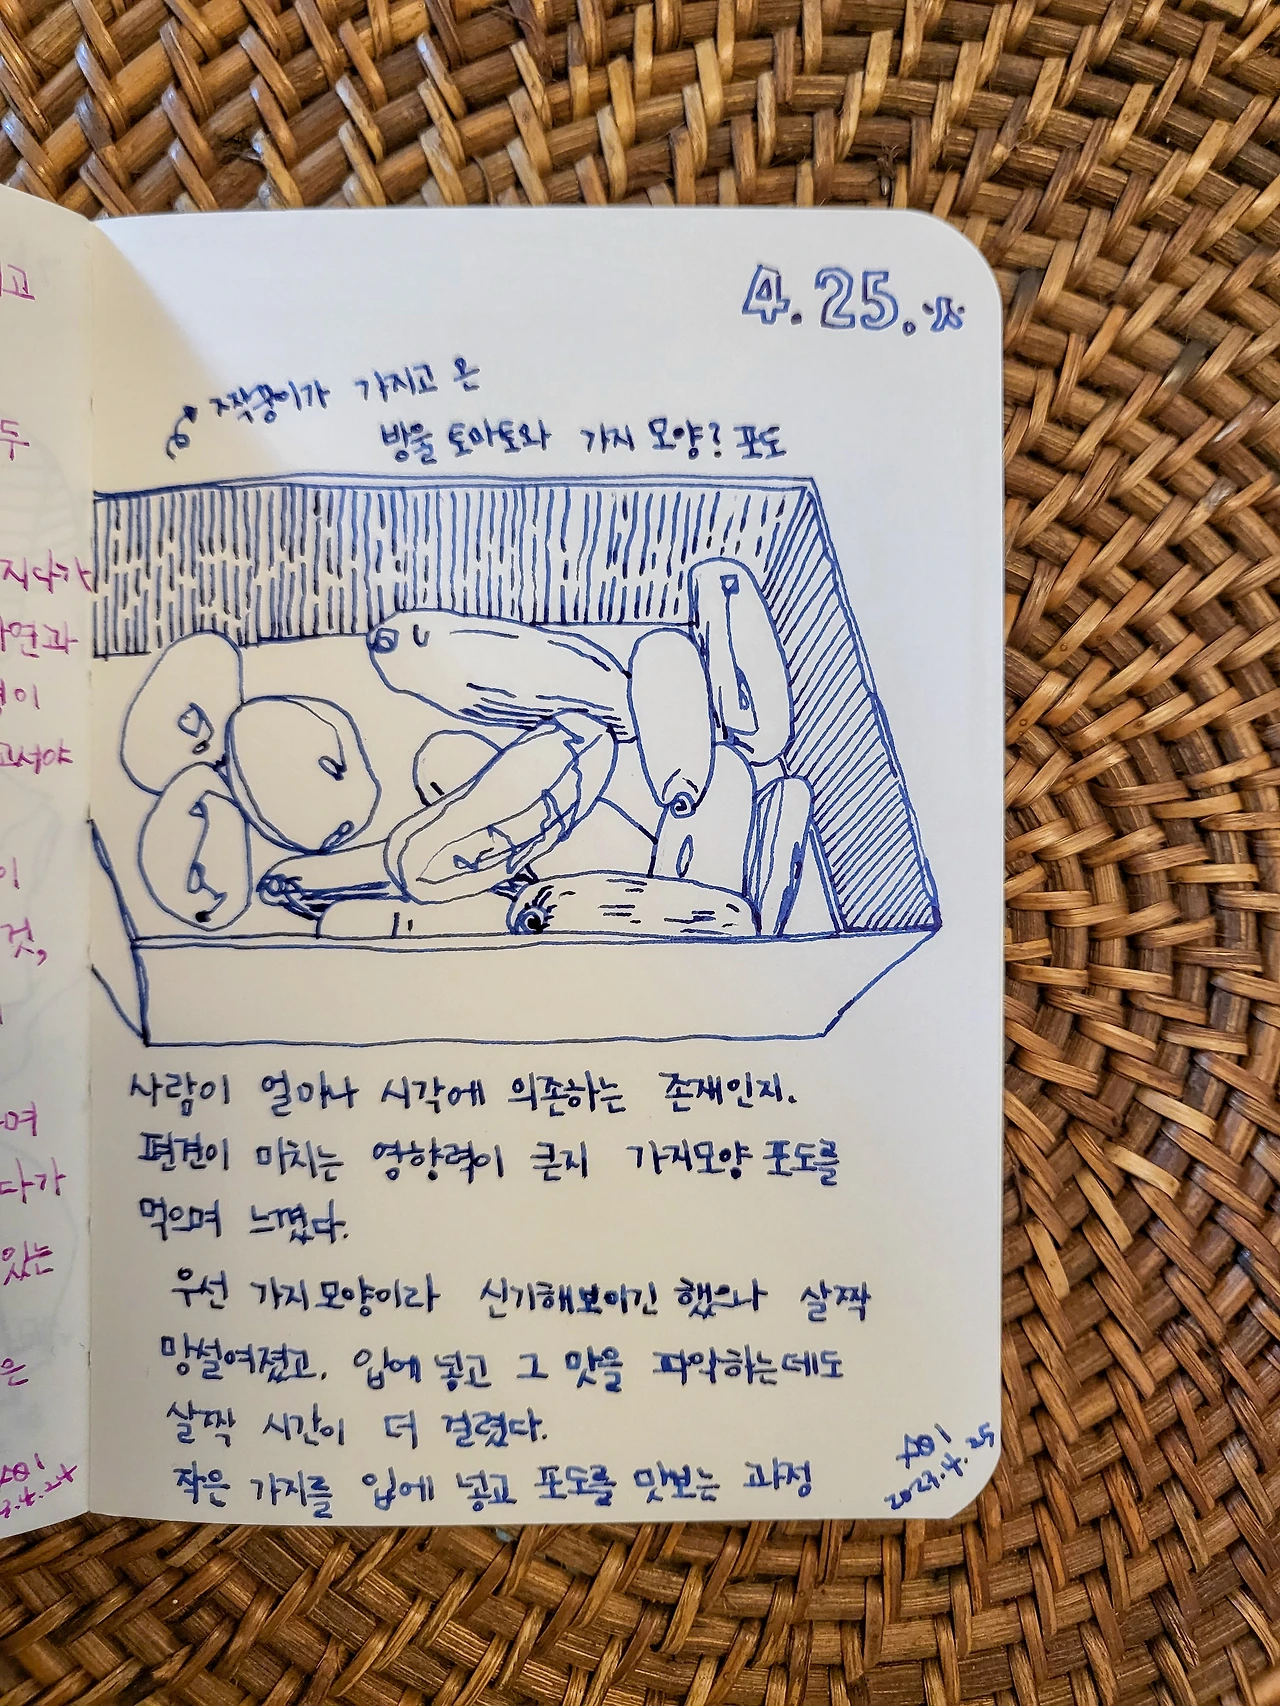 고
두
지다가
연과
이
고서야
이
것,
며
다가
있는
은
4.25.
짝꿍이가 가지고 온
방울 토마토와 가지 모양? 포도
사람이 얼마나 시각에 의존하는 존재인지.
편견이 미치는 영향력이 큰지 가지모양 포도를
먹으며 느꼈다.
우선 가지모양이라 신기해보이긴 했으나 살짝
망설여졌고, 입에 넣고 그 맛을 파악하는데도
살짝 시간이 더 걸렸다.
작은 가지를 입에 넣고 포도를 맛보는 과정
2023.4.25